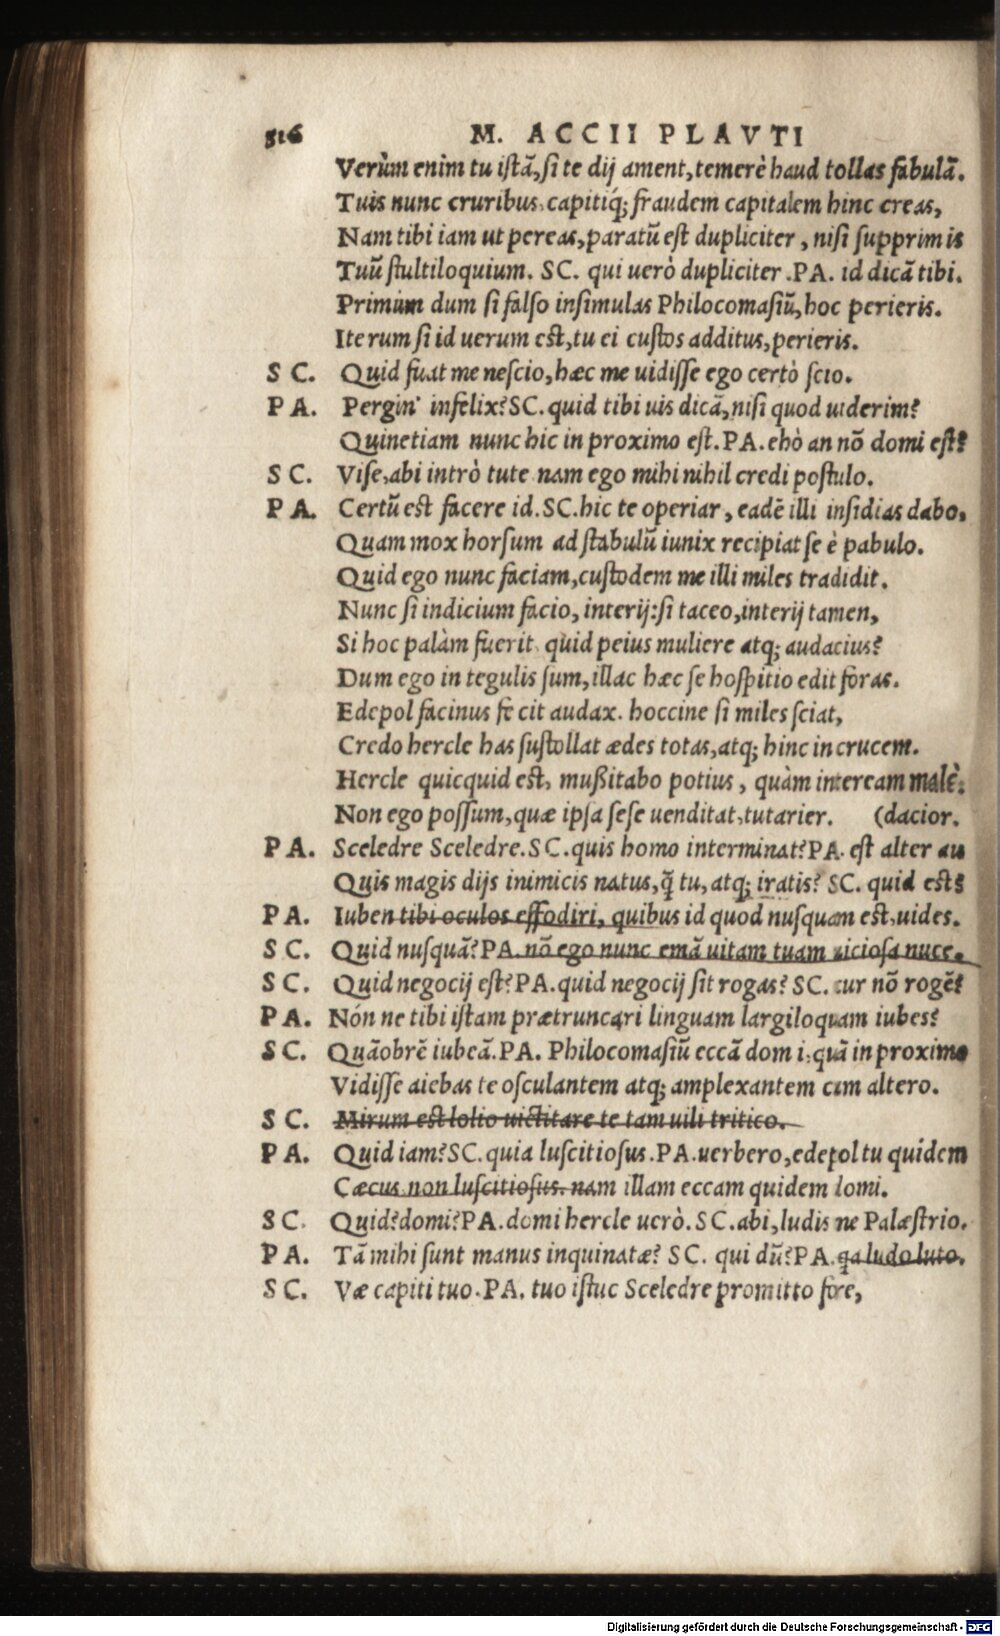 516 M. ACCII PLAVTI
Verùm enim tu istā, si te dij ament, temerè haud tollas fabulā.
Tuis nunc cruribus, capitiq́; fraudem capitalem hinc creas,
Nam tibi iam ut pereas, paratū est dupliciter, nisi supprimis
Tuū stultiloquium. SC. qui uerò dupliciter. PA. id dicā tibi.
Primùm dum si falso insimulas Philocomasiū, hoc perieris.
Iterum si id uerum est, tu ei custos additus, perieris.
SC. Quid fuat me nescio, hæc me uidisse ego certò scio.
PA. Pergin' infelix? SC. quid tibi uis dicā, nisi quod uiderim?
Quinetiam nunc hic in proximo est. PA. ehò an nō domi est?
SC. Vise, abi intrò tute nam ego mihi nihil credi postulo.
PA. Certū est facere id. SC. hic te operiar, eadē illi insidias dabo,
Quam mox horsum ad stabulū iunix recipiat se è pabulo.
Quid ego nunc faciam, custodem me illi miles tradidit.
Nunc si indicium facio, interij: si taceo, interij tamen,
Si hoc palàm fuerit. quid peius muliere atq; audacius?
Dum ego in tegulis sum, illac hæc se hospitio edit foras.
Edepol facinus fecit audax. hoccine si miles sciat,
Credo hercle has sustollat ædes totas, atq; hinc in crucem.
Hercle quicquid est, mußitabo potius, quàm inteream malè.
Non ego possum, quæ ipsa sese uenditat, tutarier. (dacior.
PA. Sceledre Sceledre. SC. quis homo interminat? PA. est alter au
Quis magis dijs inimicis natus, q̄ tu, atq; iratis? SC. quid est?
PA. Iuben tibi oculos effodiri, quibus id quod nusquam est, uides.
SC. Quid nusquā? PA. nō ego nunc emā uitam tuam uiciosa nuce.
SC. Quid negocij est? PA. quid negocij sit rogas? SC. cur nō rogē?
PA. Nón ne tibi istam prætruncari linguam largiloquam iubes?
SC. Quāobrē iubeā. PA. Philocomasiū eccā domi, quā in proximo
Vidisse aiebas te osculantem atq; amplexantem cum altero.
SC. Mirum est lolio uictitare te tam uili tritico.
PA. Quid iam? SC. quia luscitiosus. PA. uerbero, edepol tu quidem
Cæcus, non luscitiosus. nam illam eccam quidem domi.
SC. Quid? domi? PA. domi hercle uerò. SC. abi, ludis ne Palæstrio.
PA. Tā mihi sunt manus inquinatæ? SC. qui dū? PA. qa ludo luto.
SC. Væ capiti tuo. PA. tuo istuc Sceledre promitto fore,
Digitalisierung gefördert durch die Deutsche Forschungsgemeinschaft - DFG